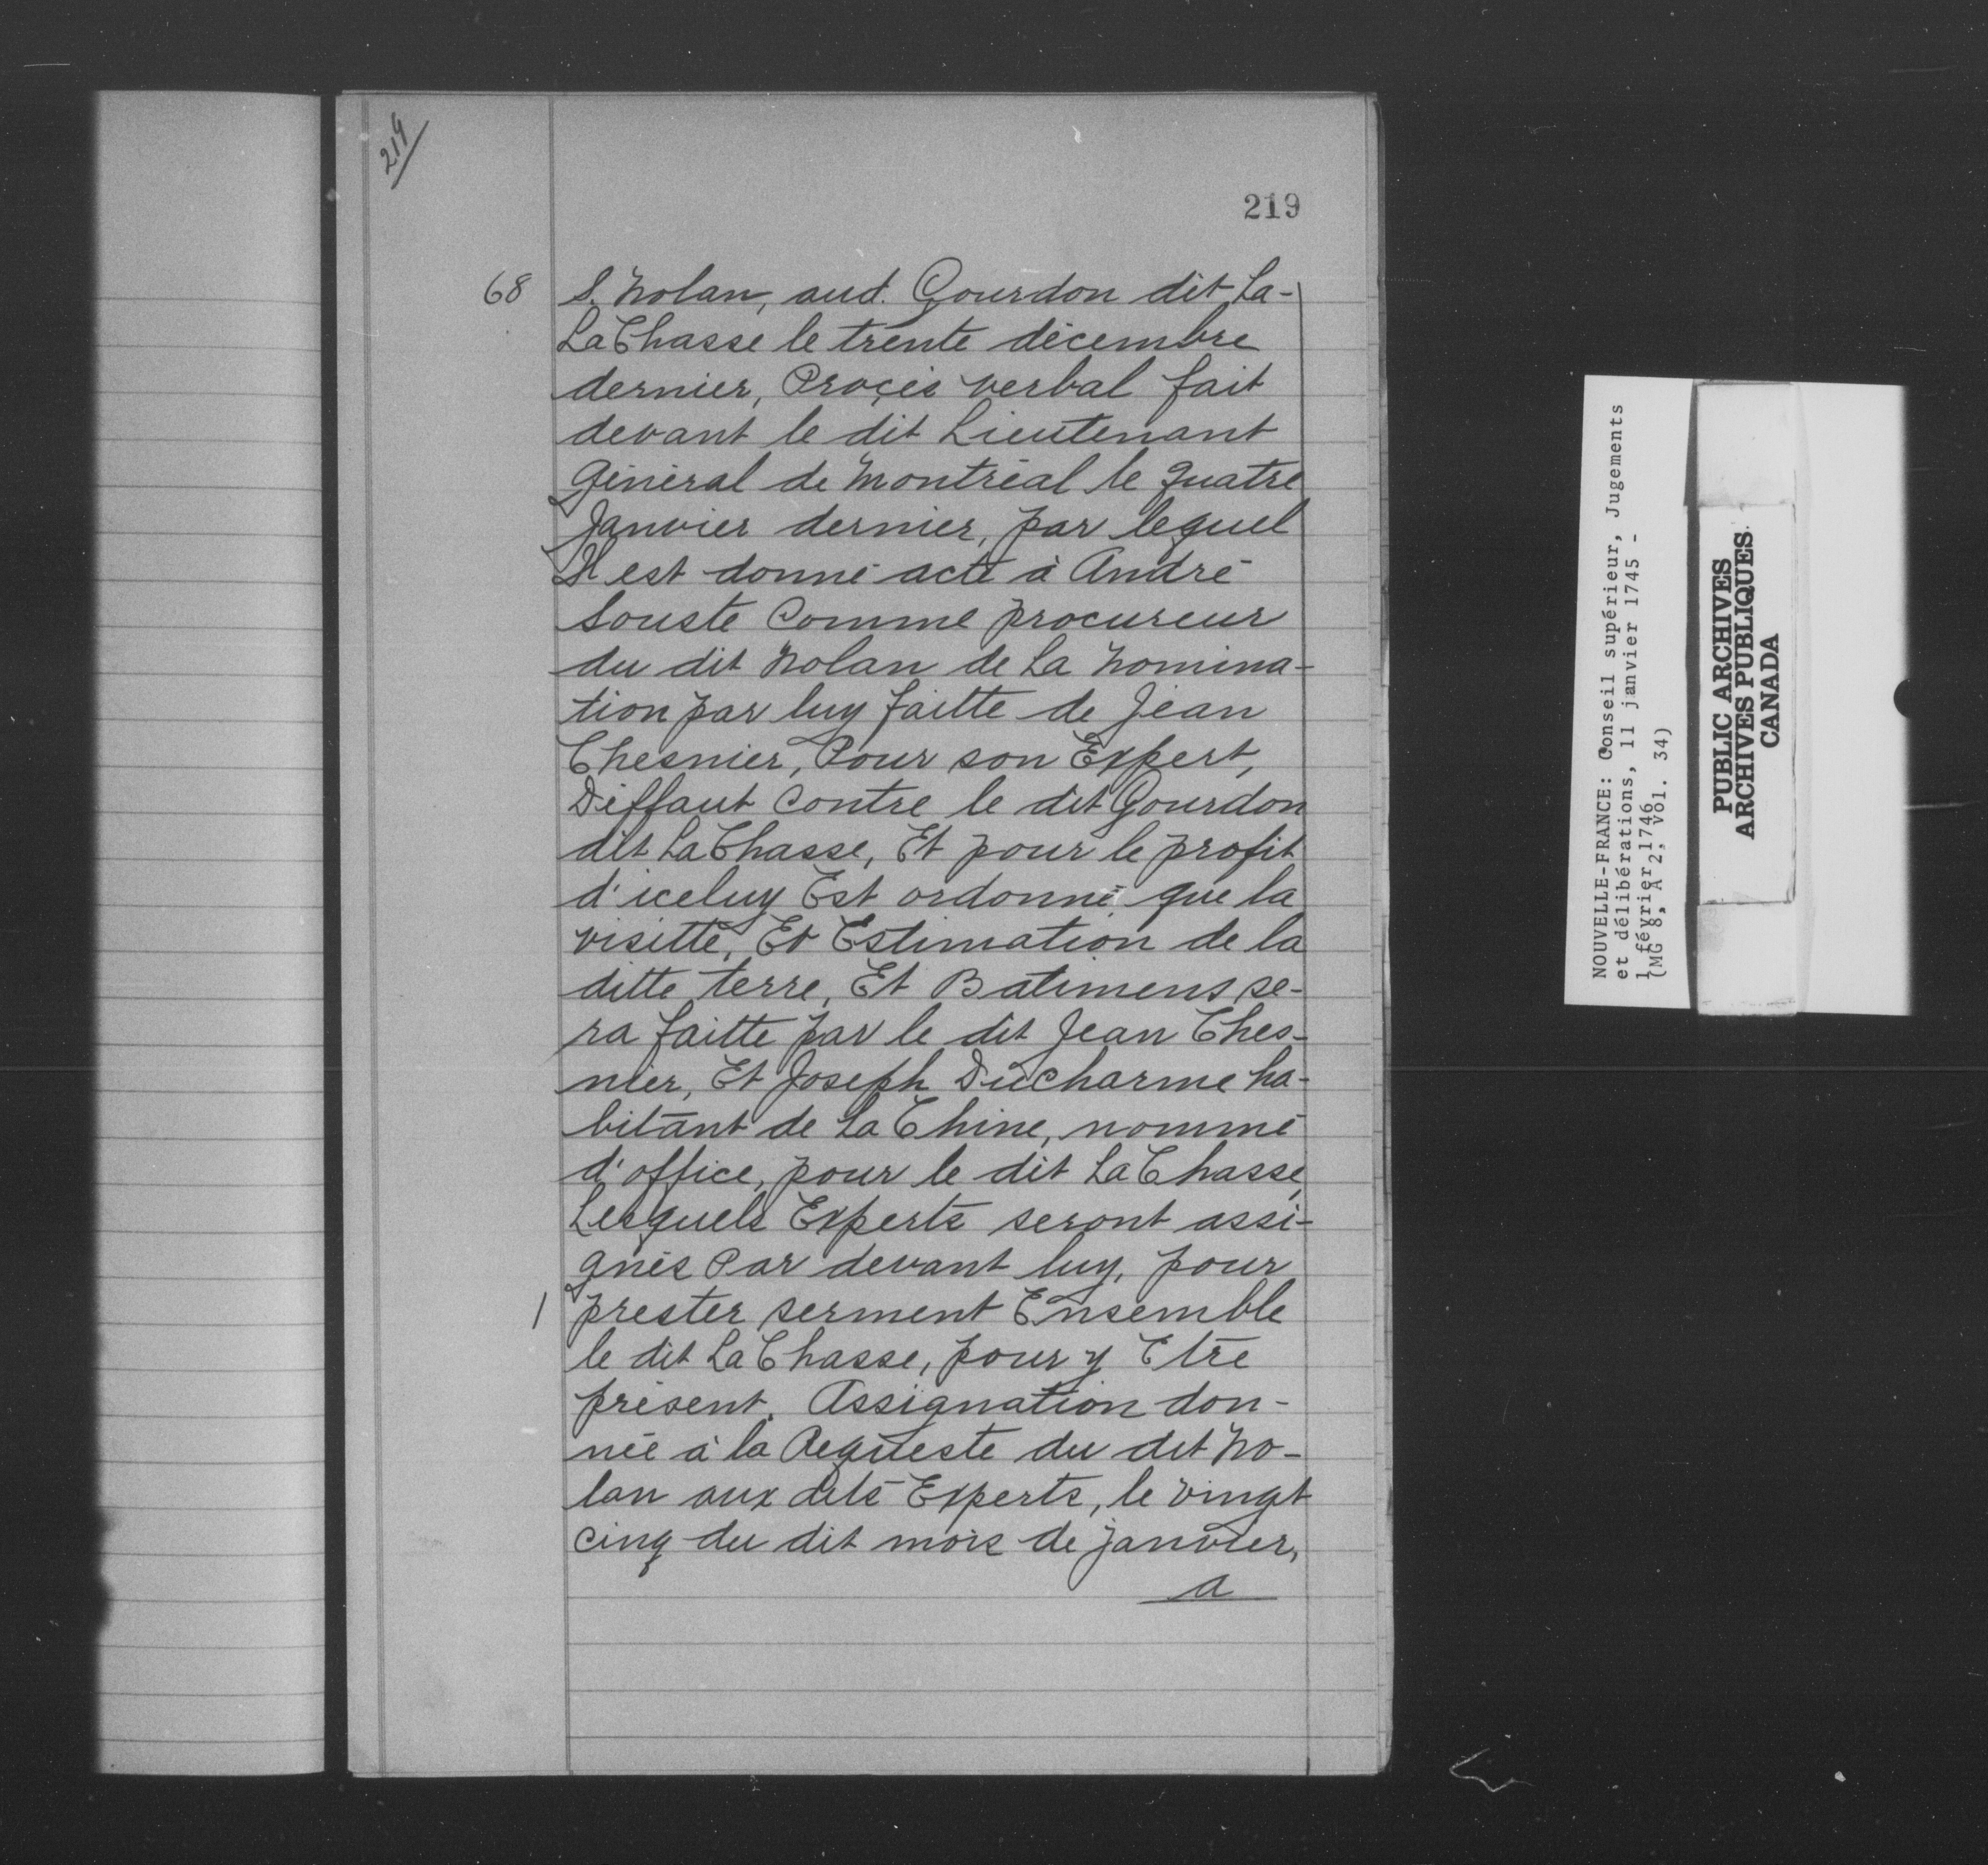 219
219
68 S. Nolan, aud. Gourdon dit La-
LaChasse le trente décembre
dernier, Procès verbal fait
devant le dit Lieutenant
Général de Montréal le quatre
Janvier dernier, par lequel
Il est donné acte à André
Souste Comme procureur
du dit Nolan de La nomina-
tion par luy faitte de Jean
Chesnier, Pour son Expert,
Déffaut contre le dit Gourdon
dit LaChasse, Et pour le profit
d'iceluy Est ordonné que la
visitte, Et Estimation de la
ditte terre, Et Batimens se-
ra faitte par le dit Jean Ches-
nier, Et Joseph DuCharme ha-
bitant de La Chine, nommé
d'office, pour le dit LaChasse,
Lesquels Experts seront assi-
gnés Par devant luy, pour
1 prester serment Ensemble
le dit LaChasse, pour y Etre
présent. Assignation don-
née à la Requeste du dit No-
lan aux dits Experts, le vingt
cinq du dit mois de janvier,
a
NOUVELLE-FRANCE: Conseil supérieur, Jugements
et délibérations, 11 janvier 1745 -
1 février 1746
(MG 8, A 2, vol. 34)
PUBLIC ARCHIVES
ARCHIVES PUBLIQUES
CANADA